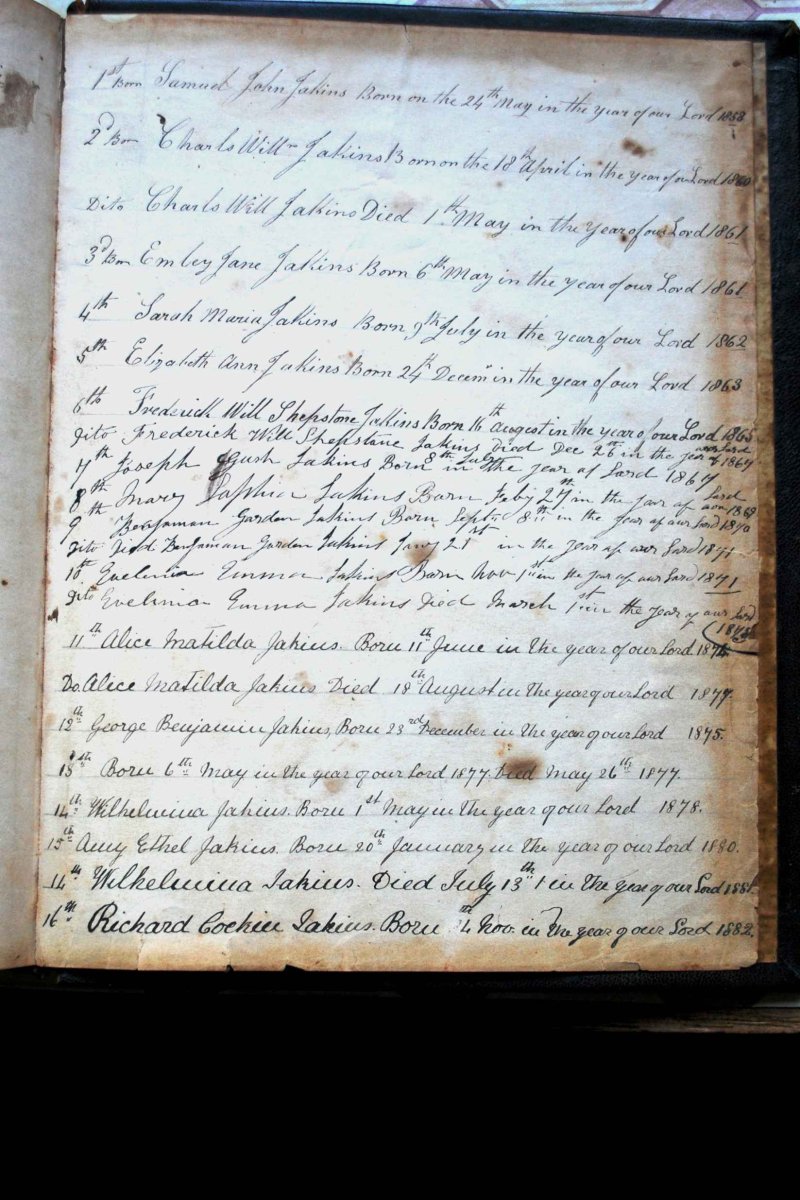 1st Born Samuel John Jakins Born on the 24th May in the year of our Lord 1858
2d Born Charls Willm Jakins Born on the 18th April in the year of our Lord 1860
Dito Charls Will Jakins Died 1th May in the year of our Lord 1861
3d Born Emley Jane Jakins Born 6th May in the year of our Lord 1861
4th Sarah Maria Jakins Born 9th July in the year of our Lord 1862
5th Elizabeth Ann Jakins Born 24th Decem" in the year of our Lord 1863
6th Frederick Will Shepstone Jakins Born 16th August in the year of our Lord 1865
Dito Frederick Will Shepstone Jakins Died Dec 26th in the year of our Lord 1867
7th Joseph Gush Jakins Born 8th July in the year of Lord 1867
8th Mary Saphia Jakins Born Feby 27th in the year of our Lord 1869
9th Benjaman Gordon Jakins Born Sept 8th in the year of our Lord 1870
Dito Died Benjaman Gordon Jakins Jany 21st in the year of our Lord 1871
10th Evelinia Emma Jakins Born Nov 1st in the year of our Lord 1871
Dito Evelinia Emma Jakins Died March 1st in the year of our Lord
11th Alice Matilda Jakins. Born 11th June in the year of our Lord 1874
Do. Alice Matilda Jakins Died 18th August in the year of our Lord 1877.
12th George Benjamin Jakins, Born 23rd December in the year of our Lord 1875.
13th Born 6th May in the year of our Lord 1877. Died May 26th 1877.
14th Wilhelmina Jakins. Born 1st May in the year of our Lord 1878.
15th Amy Ethel Jakins. Born 20th January in the year of our Lord 1880.
14th Wilhelmina Jakins. Died July 13th in the year of our Lord 1881.
16th Richard Cockin Jakins. Born 4th Nov. in the year of our Lord 1882.